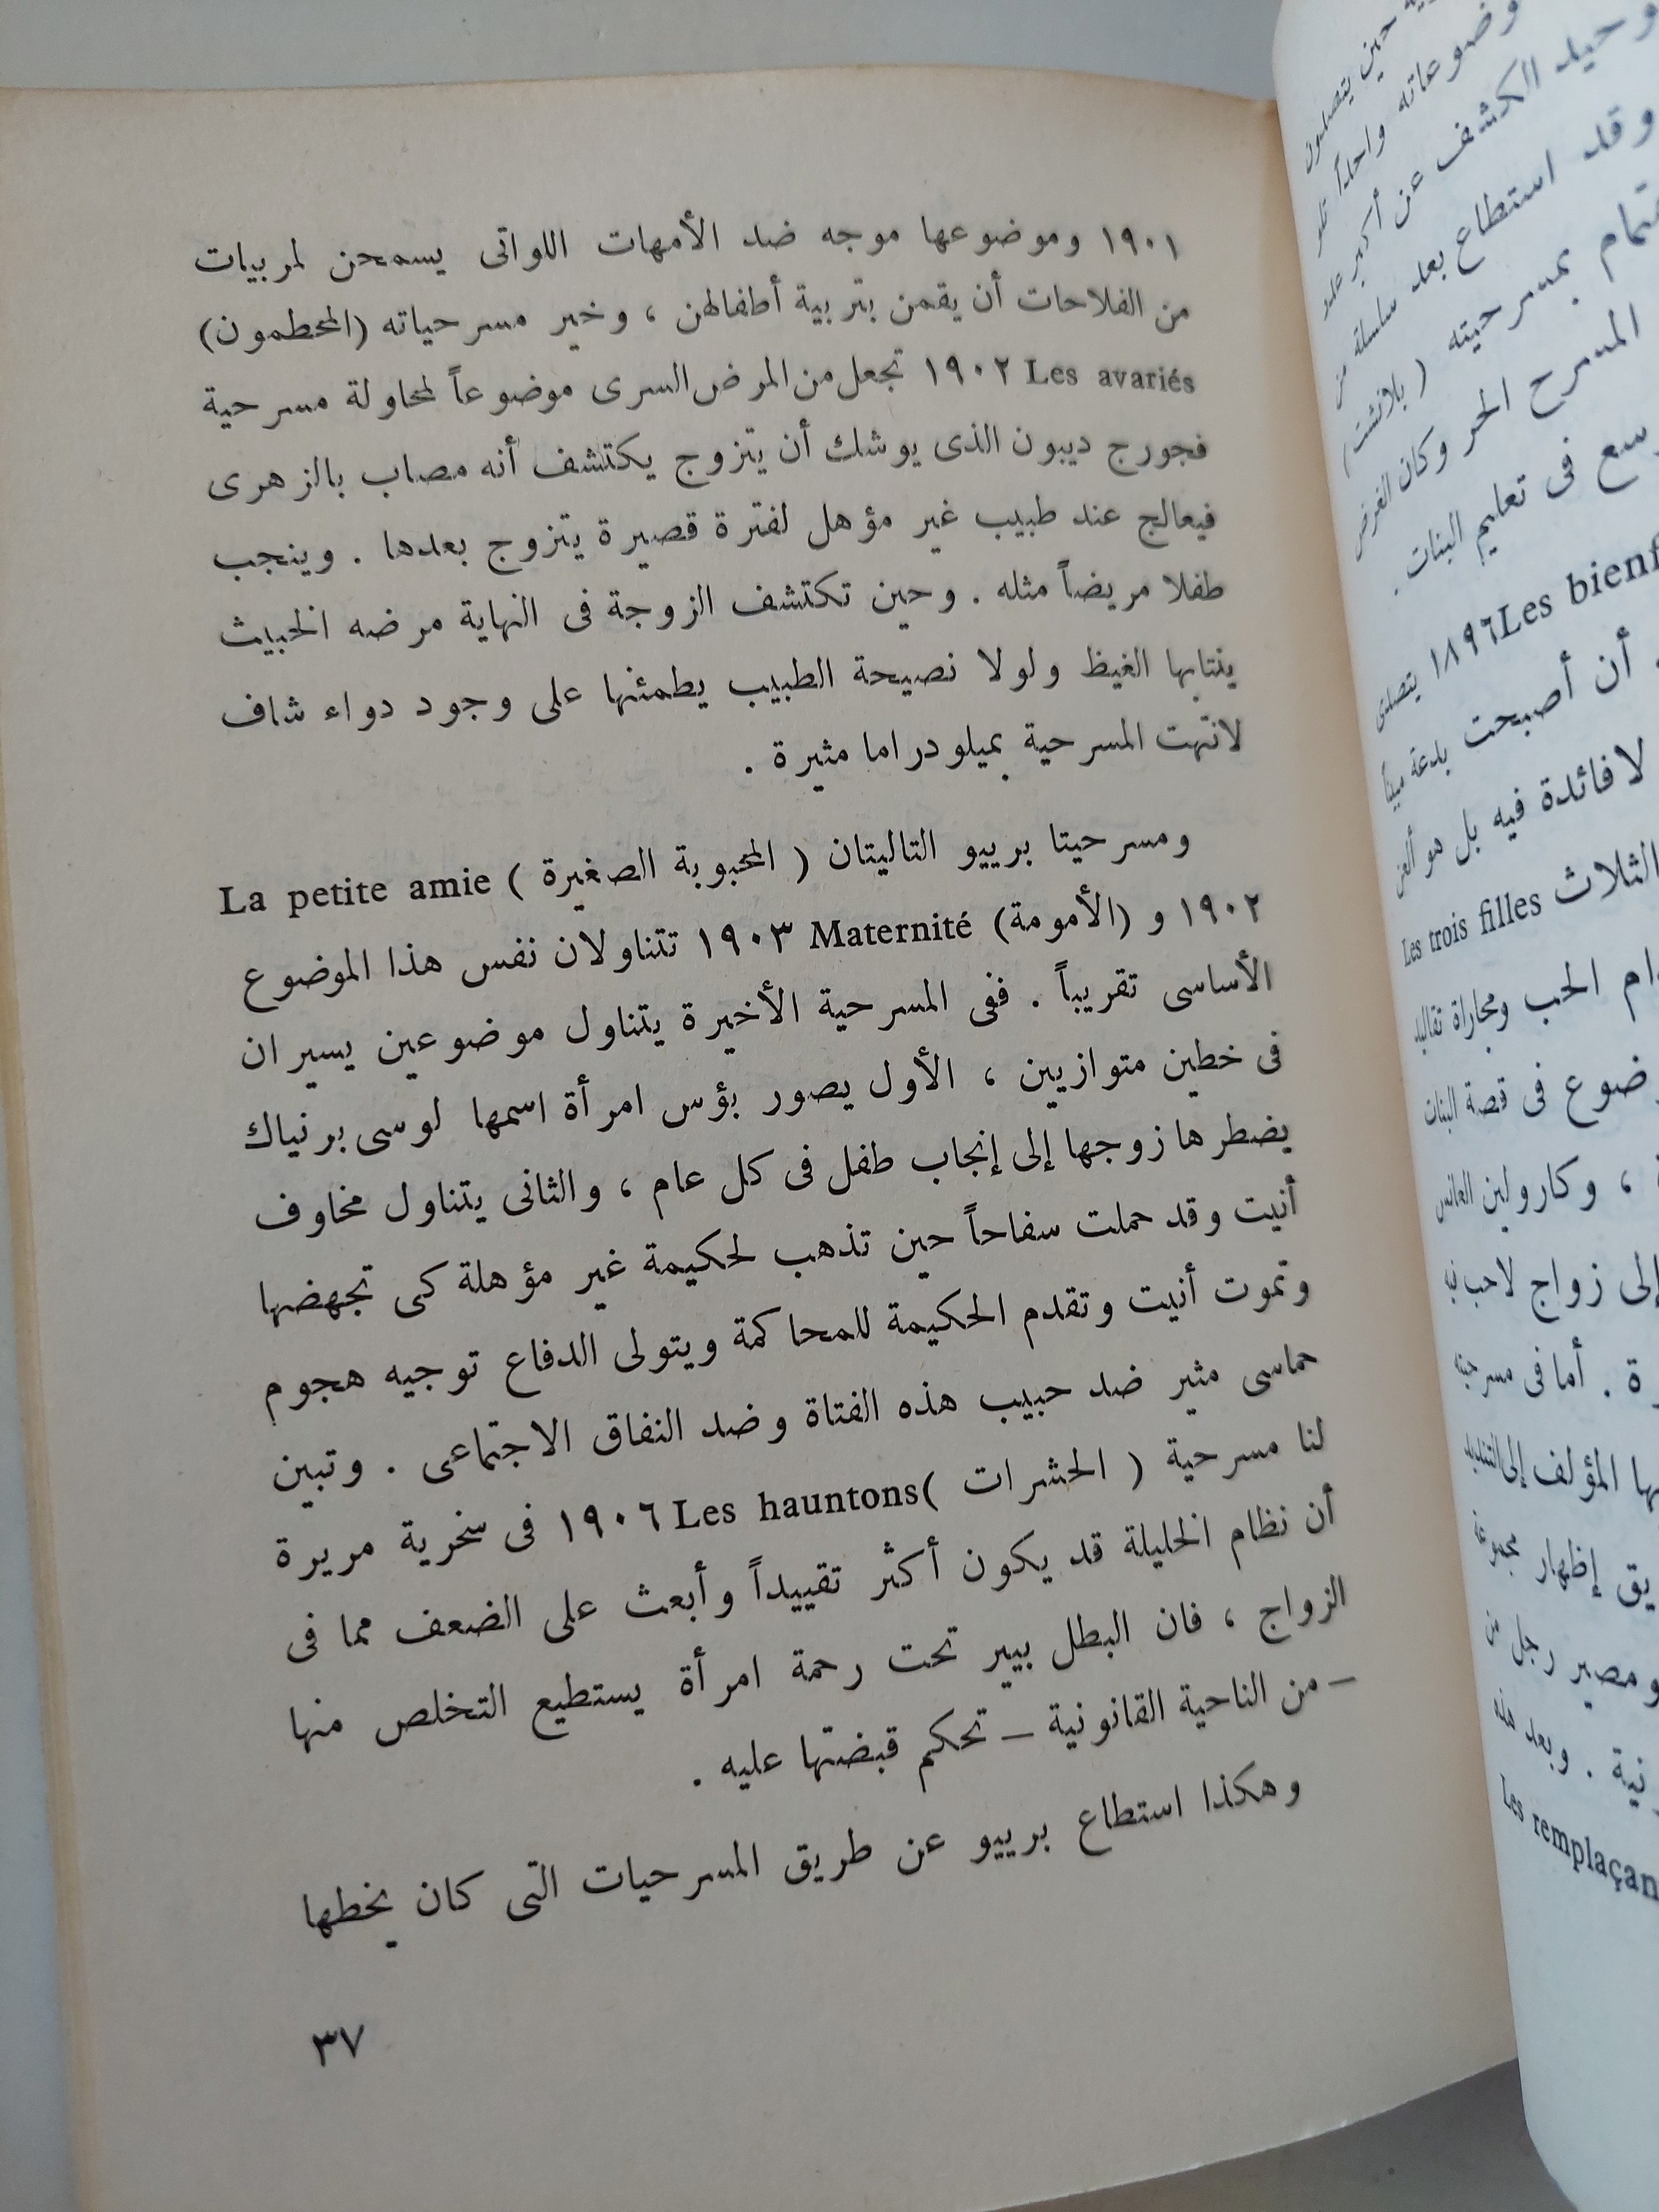 ١٩٠١ وموضوعها موجه ضد الأمهات اللواتى يسمحن لمربيات
من الفلاحات أن يقمن بتربية أطفالهن ، وخير مسرحياته (المحطمون)
Les avariés ١٩٠٢ تجعل من المرض السرى موضوعاً لمحاولة مسرحية
فجورج ديبون الذى يوشك أن يتزوج يكتشف أنه مصاب بالزهرى
فيعالج عند طبيب غير مؤهل لفترة قصيرة يتزوج بعدها . وينجب
طفلا مريضاً مثله . وحين تكتشف الزوجة فى النهاية مرضه الخبيث
ينتابها الغيظ ولولا نصيحة الطبيب يطمئنها على وجود دواء شاف
لانتهت المسرحية بميلودراما مثيرة .
ومسرحيتا برييو التاليتان ( المحبوبة الصغيرة ) La petite amie
١٩٠٢ و (الأمومة) Maternité ١٩٠٣ تتناولان نفس هذا الموضوع
الأساسى تقريباً . ففى المسرحية الأخيرة يتناول موضوعين يسيران
فى خطين متوازيين ، الأول يصور بؤس امرأة اسمها لوسى برنياك
يضطرها زوجها إلى إنجاب طفل فى كل عام ، والثانى يتناول مخاوف
أنيت وقد حملت سفاحاً حين تذهب لحكيمة غير مؤهلة كى تجهضها
وتموت أنيت وتقدم الحكيمة للمحاكمة ويتولى الدفاع توجيه هجوم
حماسى مثير ضد حبيب هذه الفتاة وضد النفاق الاجتماعى . وتبين
لنا مسرحية ( الحشرات )Les hauntons ١٩٠٦ فى سخرية مريرة
أن نظام الخليلة قد يكون أكثر تقييداً وأبعث على الضعف مما فى
الزواج ، فان البطل بيير تحت رحمة امرأة يستطيع التخلص منها
– من الناحية القانونية – تحكم قبضتها عليه .
وهكذا استطاع برييو عن طريق المسرحيات التى كان يخطها
٣٧
حين يتصلون
وضوعاته واحداً تلو
وحيد الكشف عن أكبر عدد
وقد استطاع بعد سلسلة من
بمسرحيته ( بلانشت )
المسرح الحر وكان الغرض
فى تعليم البنات .
١٨٩٦ Les bienf
أن أصبحت بدعة
لا فائدة فيه بل هو
الثلاث Les trois filles
الحب ومجاراة تقاليد
فى قصة البنات
، وكارولين العانس
إلى زواج لاحب فيه
. أما فى مسرحيته
المؤلف إلى التنديد
إظهار مجموعة
ومصير رجل من
. وبعد هذه
Les remplaçan